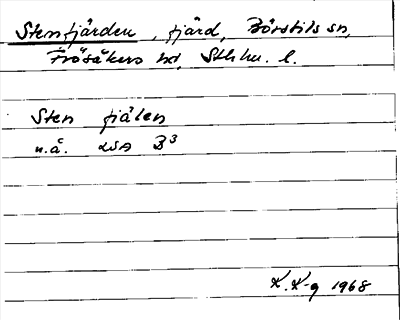 Stensfjärden, fjärd, Börstils sn,
Frösåkers hd, Sthlms l.
Sten fjälen
u.å. LSA B3
K.K-g 1968